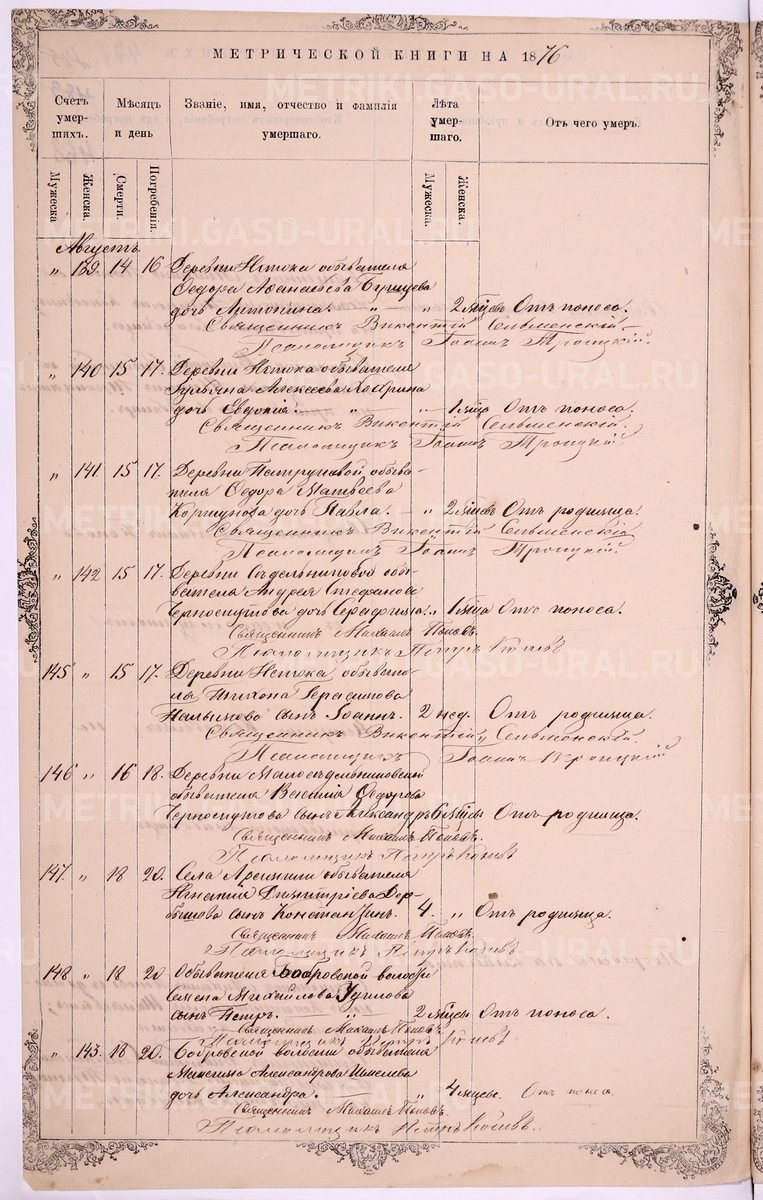 МЕТРИЧЕСКОЙ КНИГИ НА 1876
Счетъ умер- шихъ. Мѣсяцъ и день Званіе, имя, отчество и фамилія умершаго. Лѣта умер- шаго. Отъ чего умеръ.
Мужеска Женска. Смерти. Погребенія. Мужеска. Женска.
Августъ.
" 139. 14 16 Деревни Истока обывателя
Ѳедора Аѳанасьева
дочь Антонина. " " 2 мѣсяцъ Отъ поноса.
Священникъ Викентій Сельменскій.
Псаломщикъ Іоаннъ Троицкій.
" 140 15 17. Деревни Истока обывателя
Алексеева
дочь Евдокія. " " 1 мѣсяца Отъ поноса.
Священникъ Викентій Сельменскій.
Псаломщикъ Іоаннъ Троицкій.
" 141. 15 17. Деревни обыва-
теля Ѳедора Матвеева
Коршунова дочь Павла. - " 2 мѣсяцевъ Отъ родимца.
Священникъ Викентій Сельменскій
Псаломщикъ Іоаннъ Троицкій.
" 142 15 17. Деревни Седельниковой обы-
вателя Андрея Стефанова
Черноскутова дочь Серафима. " 1 мѣсяца Отъ поноса.
Священникъ Михаилъ Поповъ.
Псаломщикъ Петръ
145 " 15 17. Деревни Истока обывате-
ля Тихона Герасимова
сынъ Іоаннъ. 2 нед. Отъ родимца.
Священникъ Викентій Сельменскій.
Псаломщикъ Іоаннъ Троицкій
146 " 16 18. Деревни Малоседельниковской
обывателя Василія Ѳедорова
Черноскутова сынъ Александръ 6 мѣсяцъ Отъ родимца.
Священникъ Михаилъ Поповъ.
Псаломщикъ Петръ
147. " 18 20. Села Арамили обывателя
Игнатія Димитріева Дер-
бышева сынъ Константинъ. 4. " Отъ родимца.
Священникъ Михаилъ Поповъ.
Псаломщикъ Петръ
148 " 18 20 Обывателя Бобровской волости
Семена Михайлова
сынъ Петръ. " 2 мѣсяцъ Отъ поноса.
Священникъ Михаилъ Поповъ.
Псаломщикъ Петръ
" 143. 18 20. Бобровской волости обывателя
Александрова Шмелева
дочь Александра. " 4 мѣсяцевъ. Отъ поноса
Священникъ Михаилъ Поповъ.
Псаломщикъ Петръ
METRIKI.GASO-URAL.RU